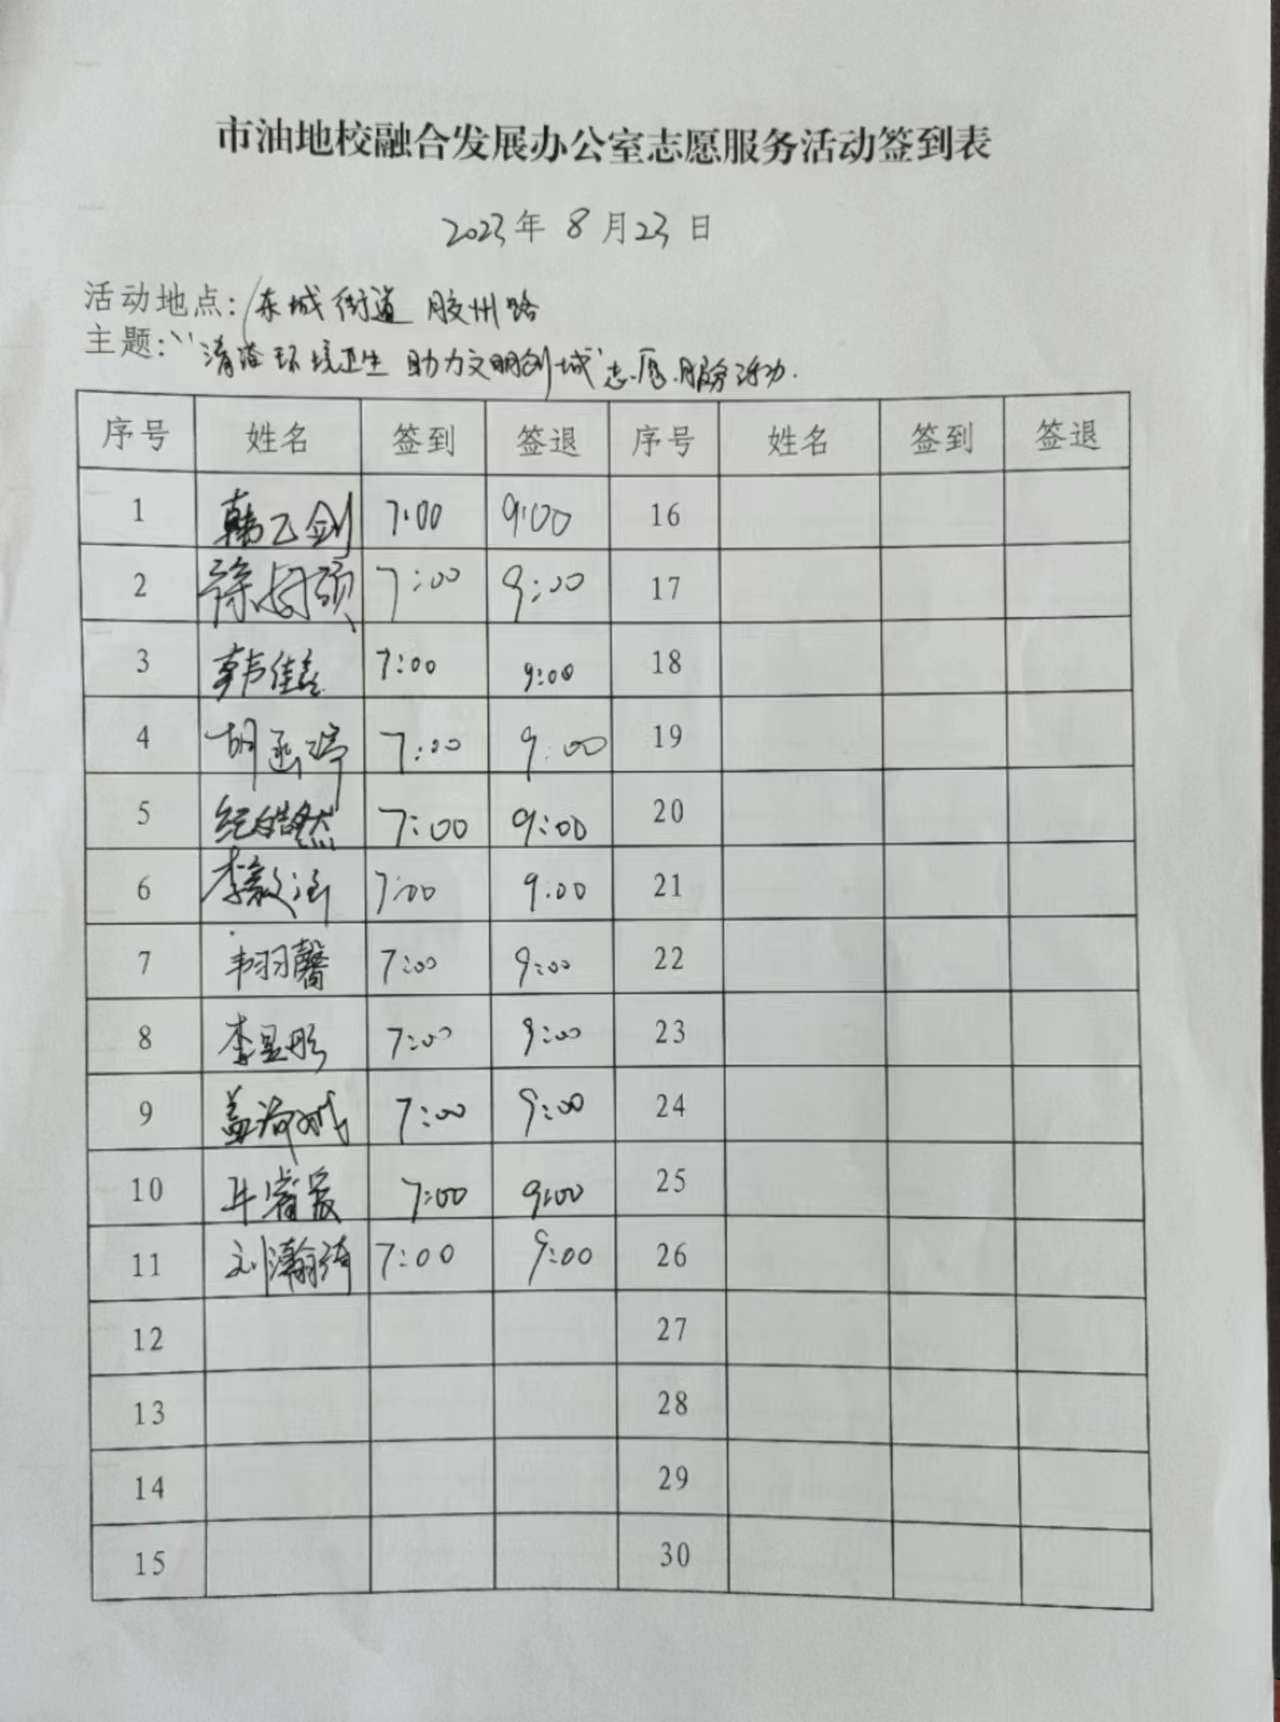 市油地校融合发展办公室志愿服务活动签到表
2023年 8月23日
活动地点: 东城街道 胶州路
主题: “清洁环境卫生 助力文明创城”志愿服务活动.
序号 姓名 签到 签退 序号 姓名 签到 签退
1 韩乙剑 7:00 9:00 16
2 徐 硕 7:00 9:00 17
3 韩佳 7:00 9:00 18
4 胡 婷 7:00 9:00 19
5 纪皓然 7:00 9:00 20
6 李毅涵 7:00 9:00 21
7 韦羽馨 7:00 9:00 22
8 李昱彤 7:00 9:00 23
9 盖 城 7:00 9:00 24
10 7:00 9:00 25
11 刘瀚 7:00 9:00 26
12 27
13 28
14 29
15 30